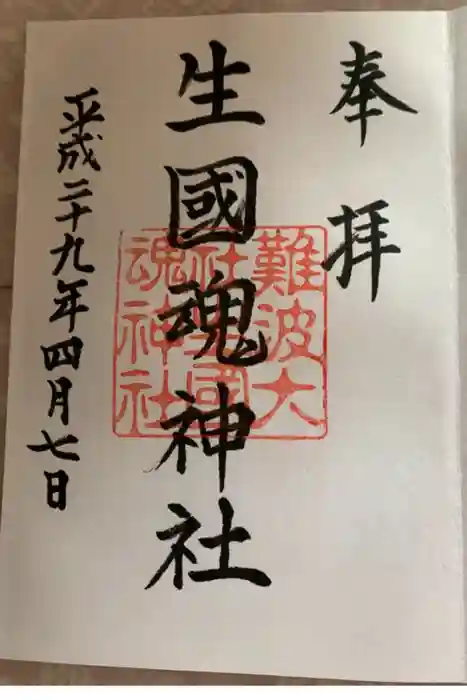 奉拝
生國魂神社
難波大
社生國
魂神社
平成二十九年四月七日